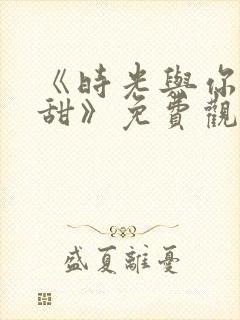 《時光與你
甜》免費觀
盛夏離憂